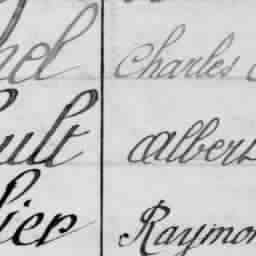 el Charles
ult Albert
ier Raymon